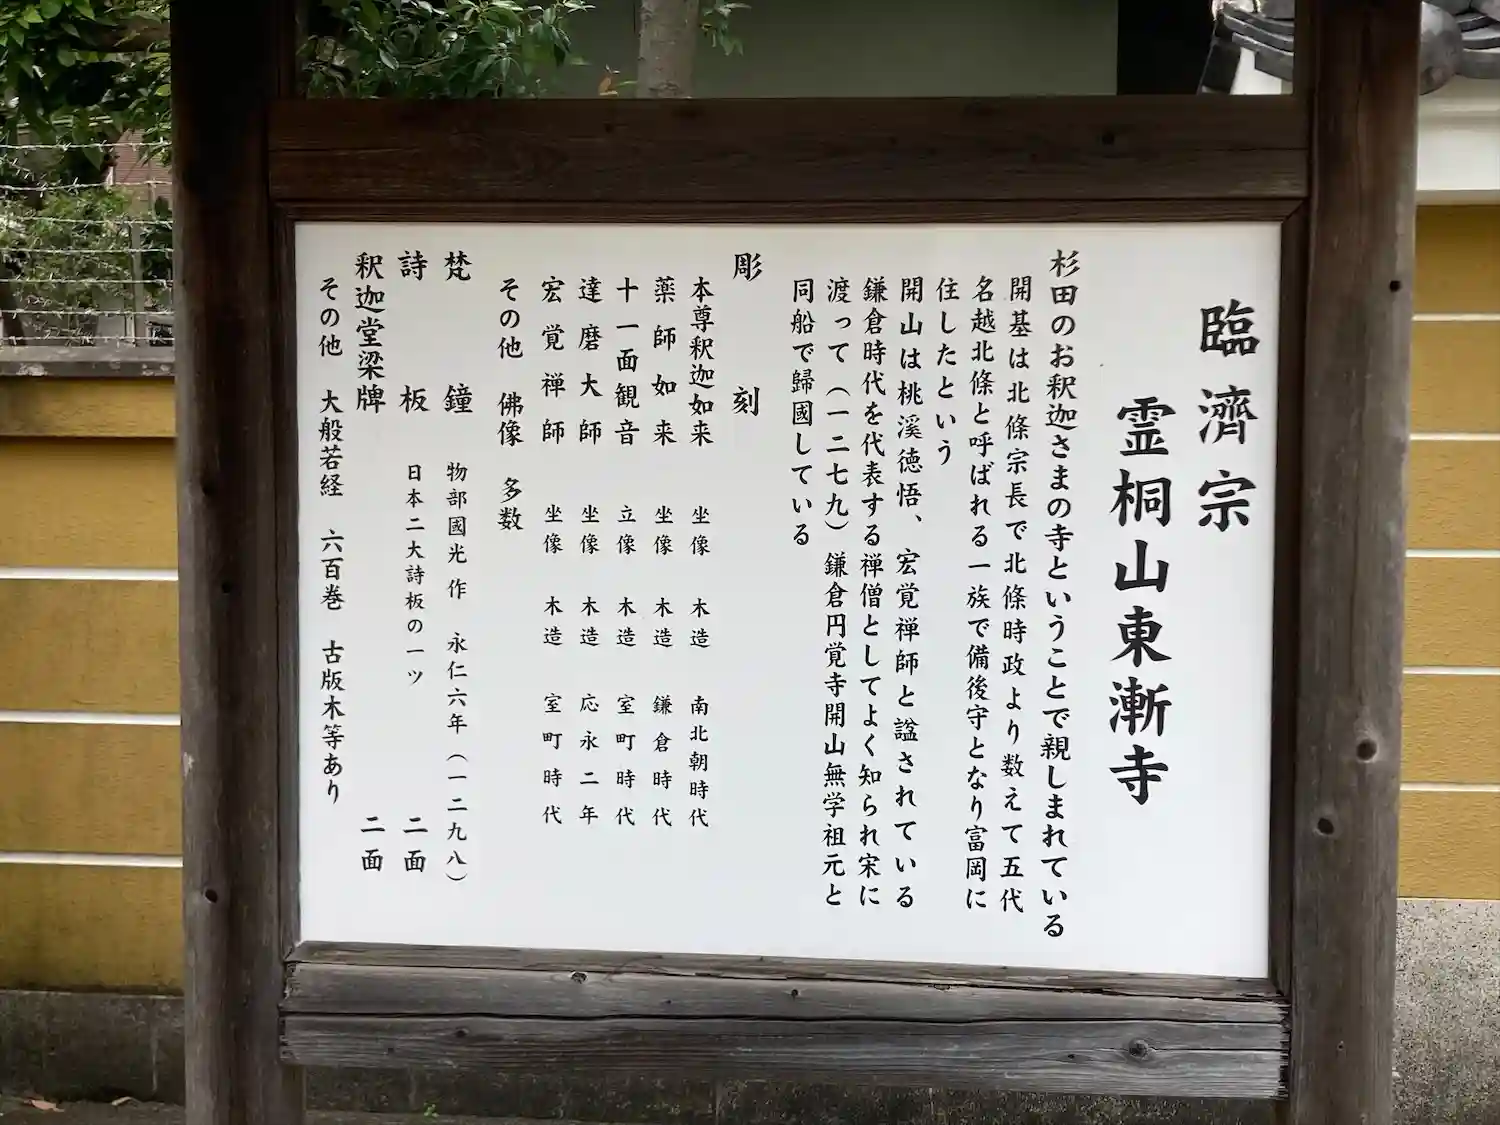 臨済宗
霊桐山東漸寺
杉田のお釈迦さまの寺ということで親しまれている
開基は北條宗長で北條時政より数えて五代
名越北條と呼ばれる一族で備後守となり富岡に
住したという
開山は桃溪徳悟、宏覚禅師と諡されている
鎌倉時代を代表する禅僧としてよく知られ宋に
渡って（一二七九）鎌倉円覚寺開山無学祖元と
同船で歸國している
彫刻
本尊釈迦如来 坐像 木造 南北朝時代
薬師如来 坐像 木造 鎌倉時代
十一面観音 立像 木造 室町時代
達磨大師 坐像 木造 応永二年
宏覚禅師 坐像 木造 室町時代
その他 佛像 多数
梵鐘 物部國光作 永仁六年（一二九八）
詩板 日本二大詩板の一ツ 二面
釈迦堂梁牌 二面
その他 大般若経 六百巻 古版木等あり